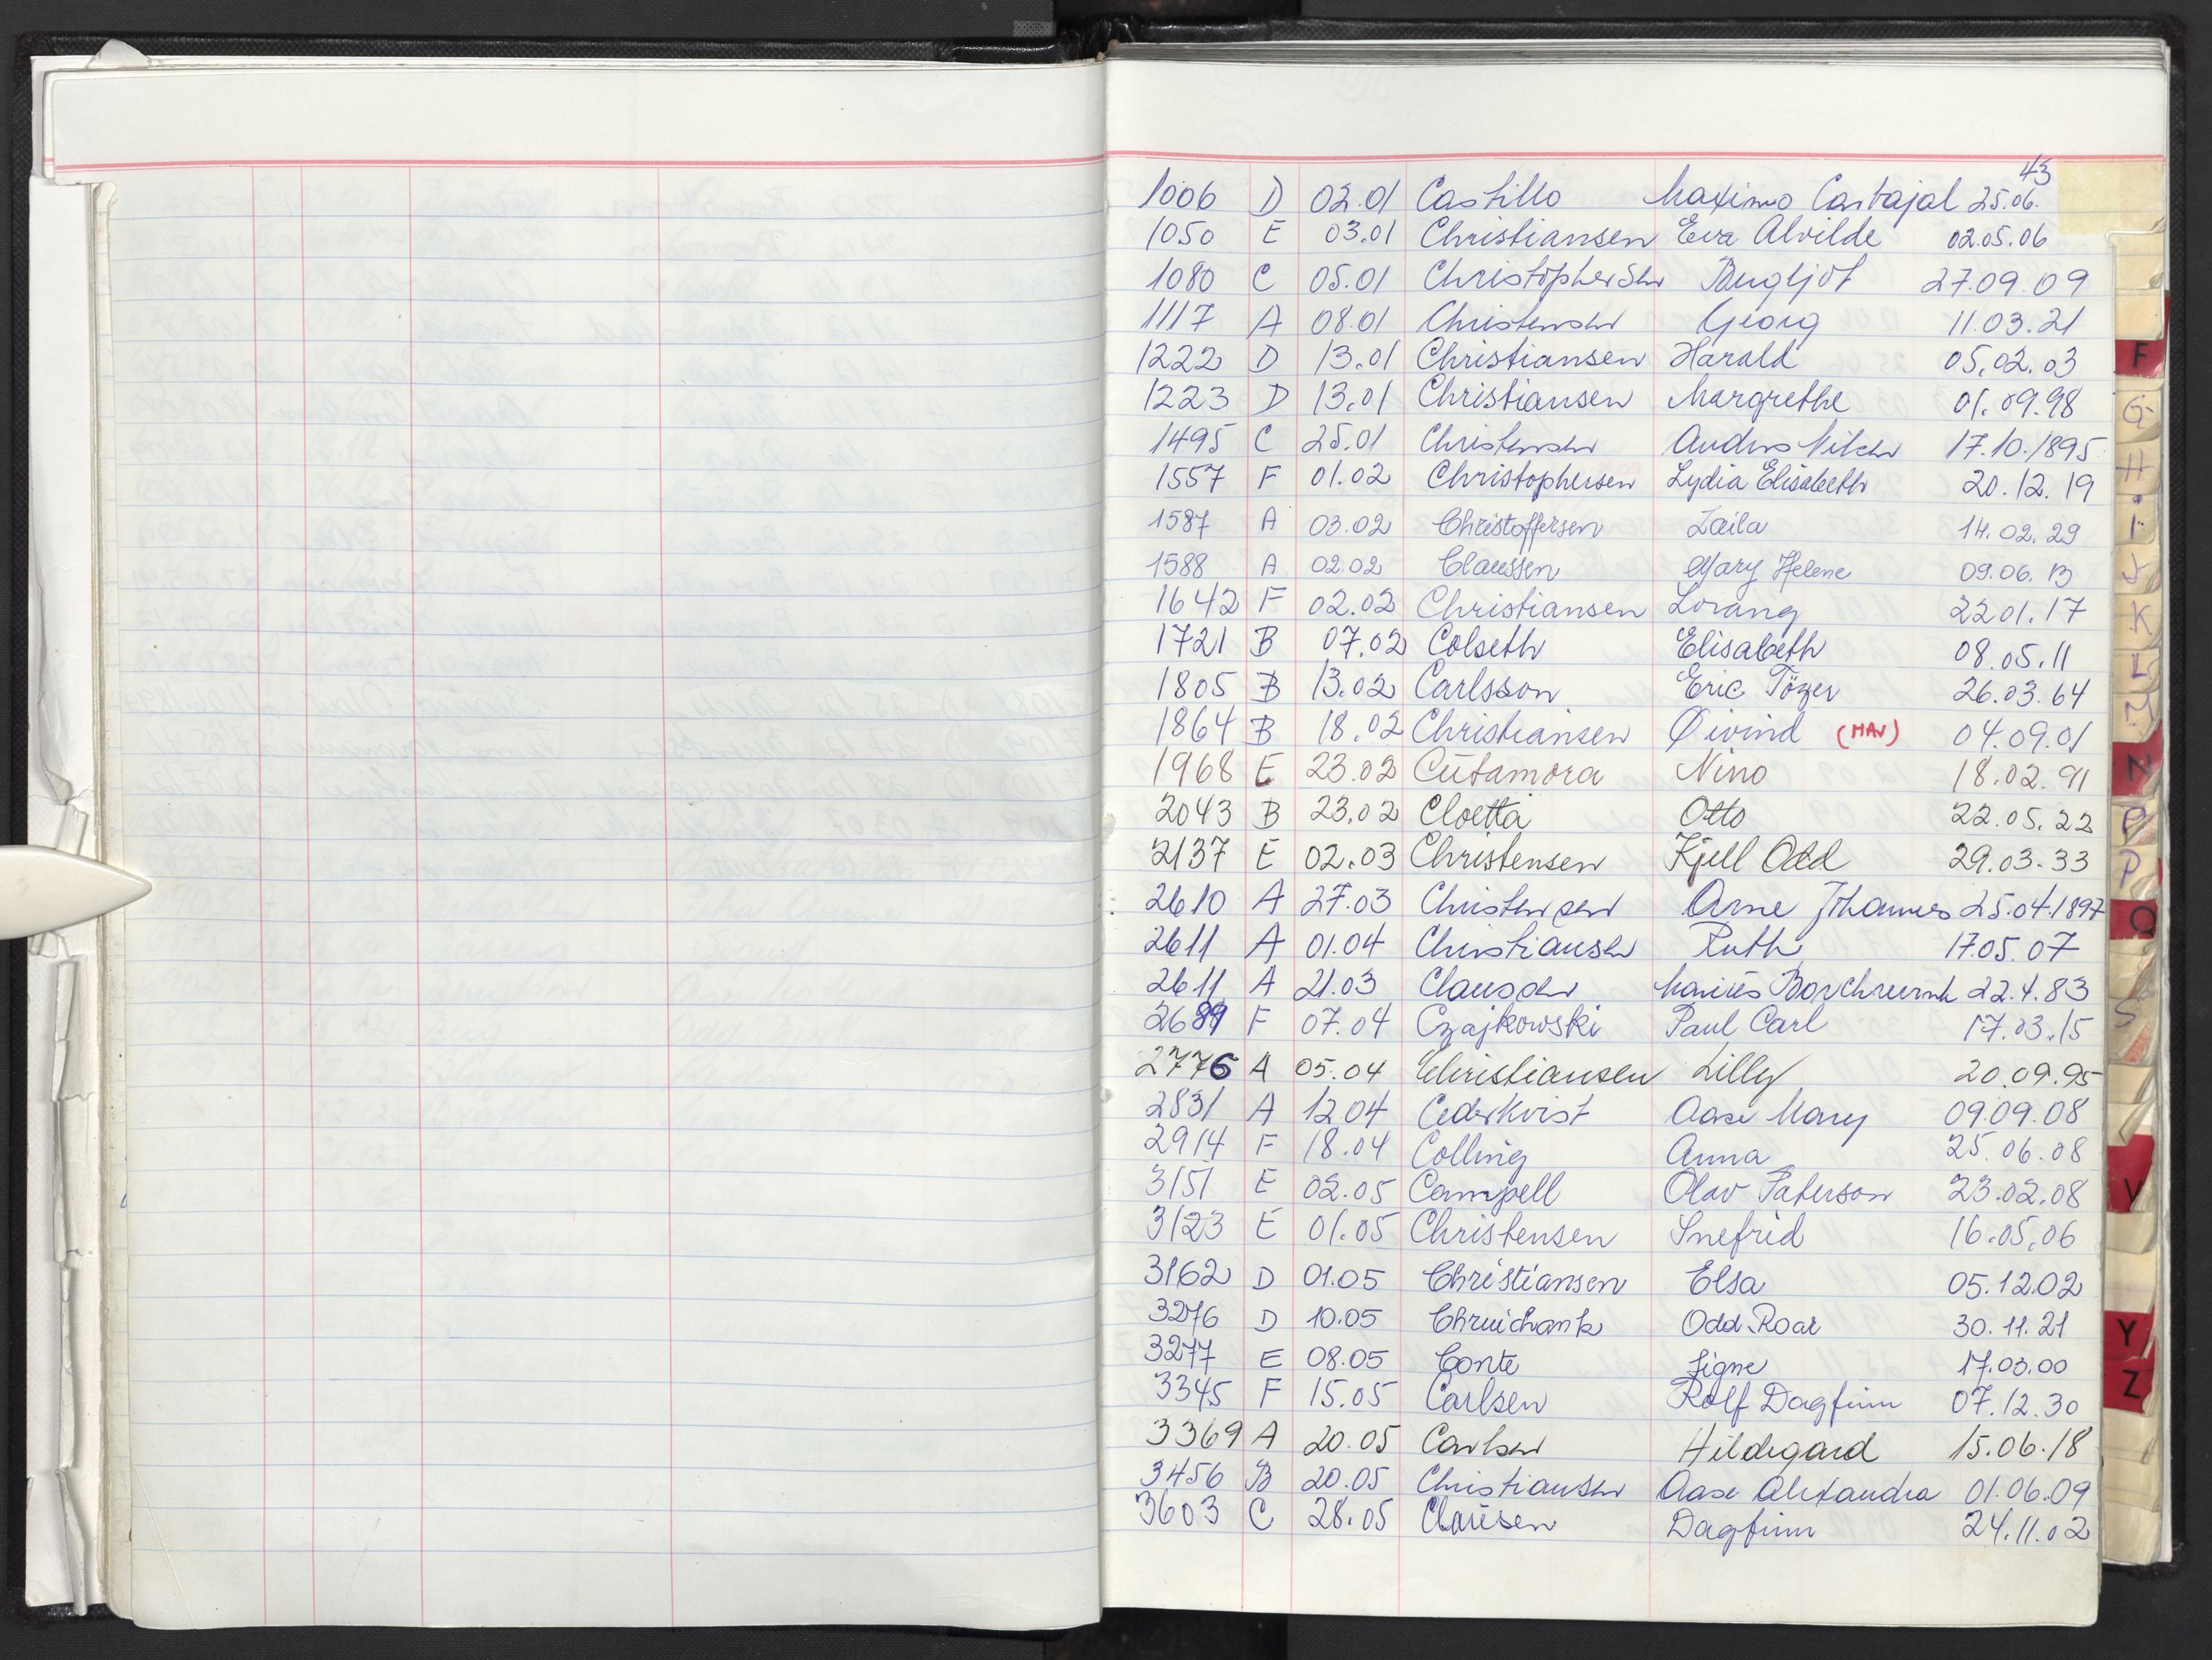 43
1006 D 02.01 Castillo Maximo Carbajal 25.06.
1050 E 03.01 Christiansen Eva Alvilde 02.05.06
1080 C 05.01 Christophersen Bergljot 27.09.09
1117 A 08.01 Christensen Georg 11.03.21
1222 D 13.01 Christiansen Harald 05.02.03
1223 D 13.01 Christiansen Margrethe 01.09.98
1495 C 25.01 Christensen Anders 17.10.1895
1557 F 01.02 Christophersen Lydia Elisabeth 20.12.19
1587 A 03.02 Christoffersen Laila 14.02.29
1588 A 02.02 Claussen Mary Helene 09.06.13
1642 F 02.02 Christiansen Lorang 22.01.17
1721 B 07.02 Colseth Elisabeth 08.05.11
1805 B 13.02 Carlsson Eric Tözer 26.03.64
1864 B 18.02 Christiansen Øivind (MAV) 04.09.01
1968 E 23.02 Cutamora Nino 18.02.91
2043 B 23.02 Cloetta Otto 22.05.22
2137 E 02.03 Christensen Kjell Odd 29.03.33
2610 A 27.03 Christensen Arne Johannes 25.04.1897
2611 A 01.04 Christiansen Ruth 17.05.07
2611 A 21.03 Clausen Marius 22.4.83
2689 F 07.04 Czajkowski Paul Carl 17.03.15
2776 A 05.04 Christiansen Lilly 20.09.95
2831 A 12.04 Cederkvist Aase Mary 09.09.08
2914 F 18.04 Colling Anna 25.06.08
3151 E 02.05 Campell Olav Paterson 23.02.08
3123 E 01.05 Christensen Snefrid 16.05.06
3162 D 01.05 Christiansen Elsa 05.12.02
3276 D 10.05 Odd Roar 30.11.21
3277 E 08.05 Conte Signe 17.03.00
3345 F 15.05 Carlsen Rolf Dagfinn 07.12.30
3369 A 20.05 Carlsen Hildegard 15.06.18
3456 B 20.05 Christiansen Aase Alexandra 01.06.09
3603 C 28.05 Clausen Dagfinn 24.11.02
F
G
H
I
J
K
L
M
N
P
Q
S
V
Y
Z